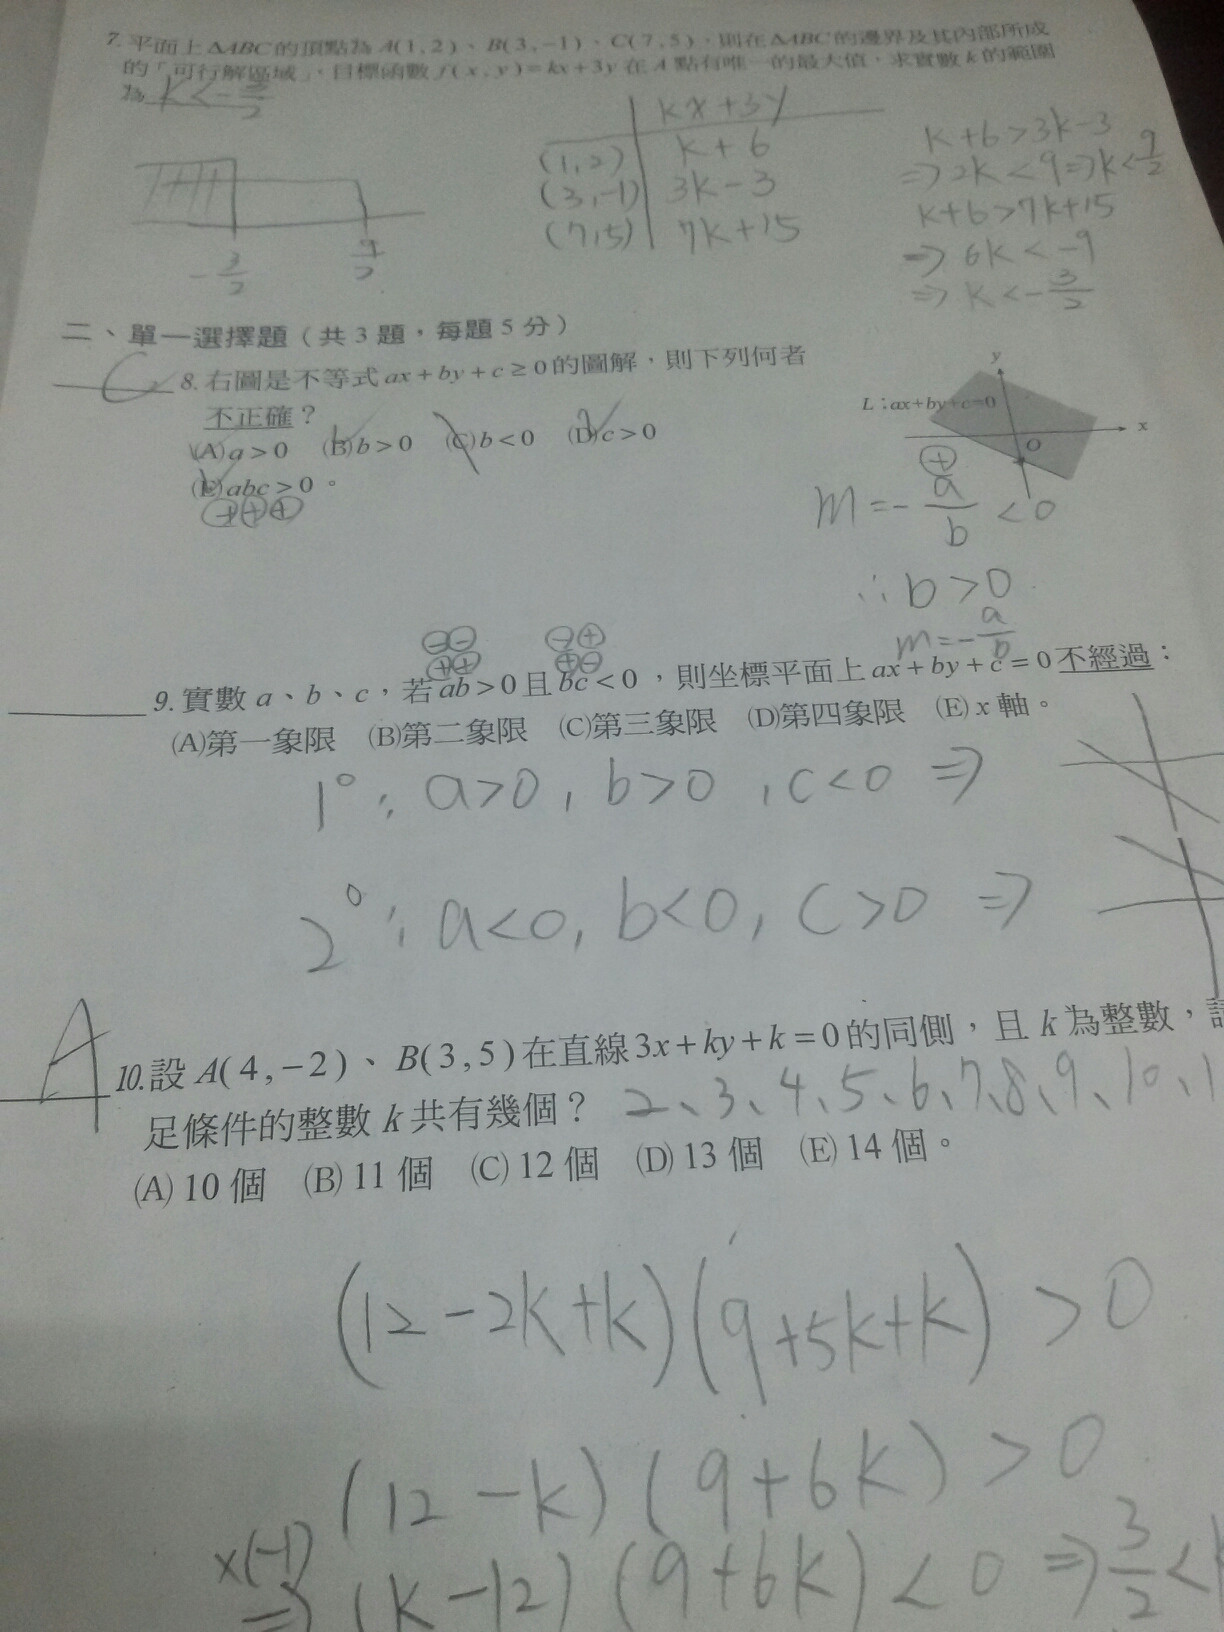 7. 平面上 ΔABC 的頂點為 A(1,2)、B(3,-1)、C(7,5),則在 ΔABC 的邊界及其內部所成
的「可行解區域」,目標函數 f(x,y)=kx+3y 在 A 點有唯一的最大值,求實數 k 的範圍
為 k<-3/2
kx+3y
(1,2) k+6
(3,-1) 3k-3
(7,5) 7k+15
k+6>3k-3
⇒2k<9⇒k<9/2
k+6>7k+15
⇒ 6k<-9
⇒ k<-3/2
-3/2 9/2
二、單一選擇題(共 3 題,每題 5 分)
C 8. 右圖是不等式 ax+by+c≥0 的圖解,則下列何者
不正確?
(A) a>0 (B) b>0 (C) b<0 (D) c>0
(E) abc>0 。
⊕⊕⊕
y
L:ax+by+c=0
x
O
⊕
m=-a/b<0
∴b>0
m=-a/b
⊖⊖ ⊖⊕
⊕⊕ ⊕⊖
9. 實數 a、b、c,若 ab>0 且 bc<0,則坐標平面上 ax+by+c=0 不經過:
(A)第一象限 (B)第二象限 (C)第三象限 (D)第四象限 (E) x 軸。
1°: a>0, b>0, c<0 ⇒
2°: a<0, b<0, c>0 ⇒
A 10.設 A(4,-2)、B(3,5)在直線3x+ky+k=0的同側,且 k 為整數,
足條件的整數 k 共有幾個? 2、3、4、5、6、7、8、9、10、1
(A) 10 個 (B) 11 個 (C) 12 個 (D) 13 個 (E) 14 個。
(12-2k+k)(9+5k+k)>0
(12-k)(9+6k)>0
×(-1)
⇒(k-12)(9+6k)<0⇒3/2<